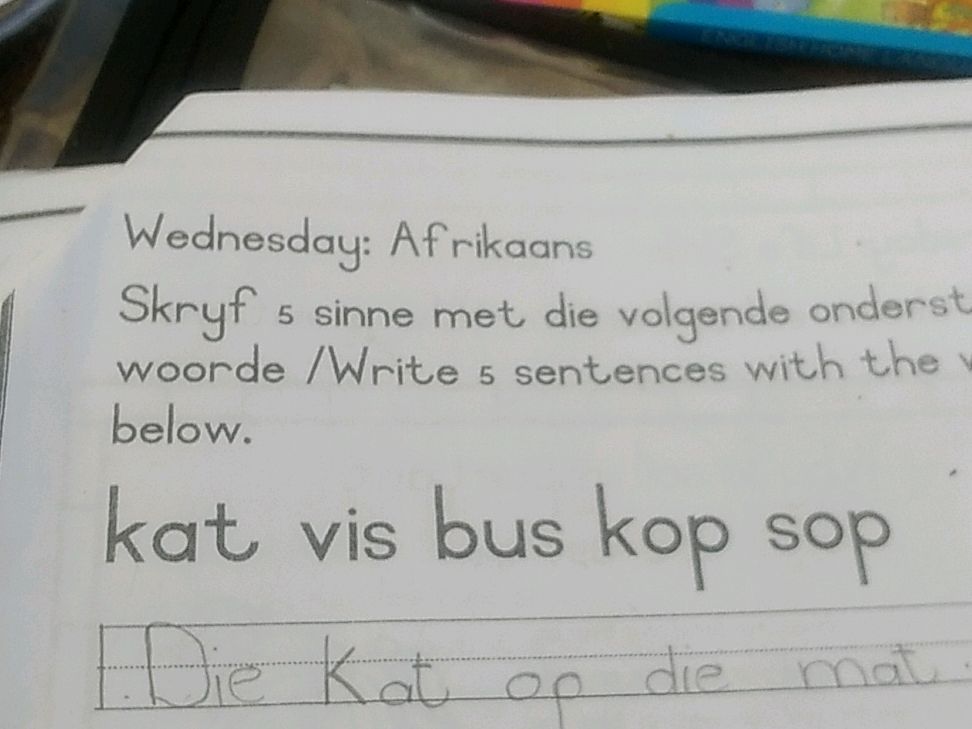 Wednesday: Afrikaans
Skryf 5 sinne met die volgende
woorde /Write 5 sentences with the
below.
kat vis bus kop sop
1. Die Kat op die mat.